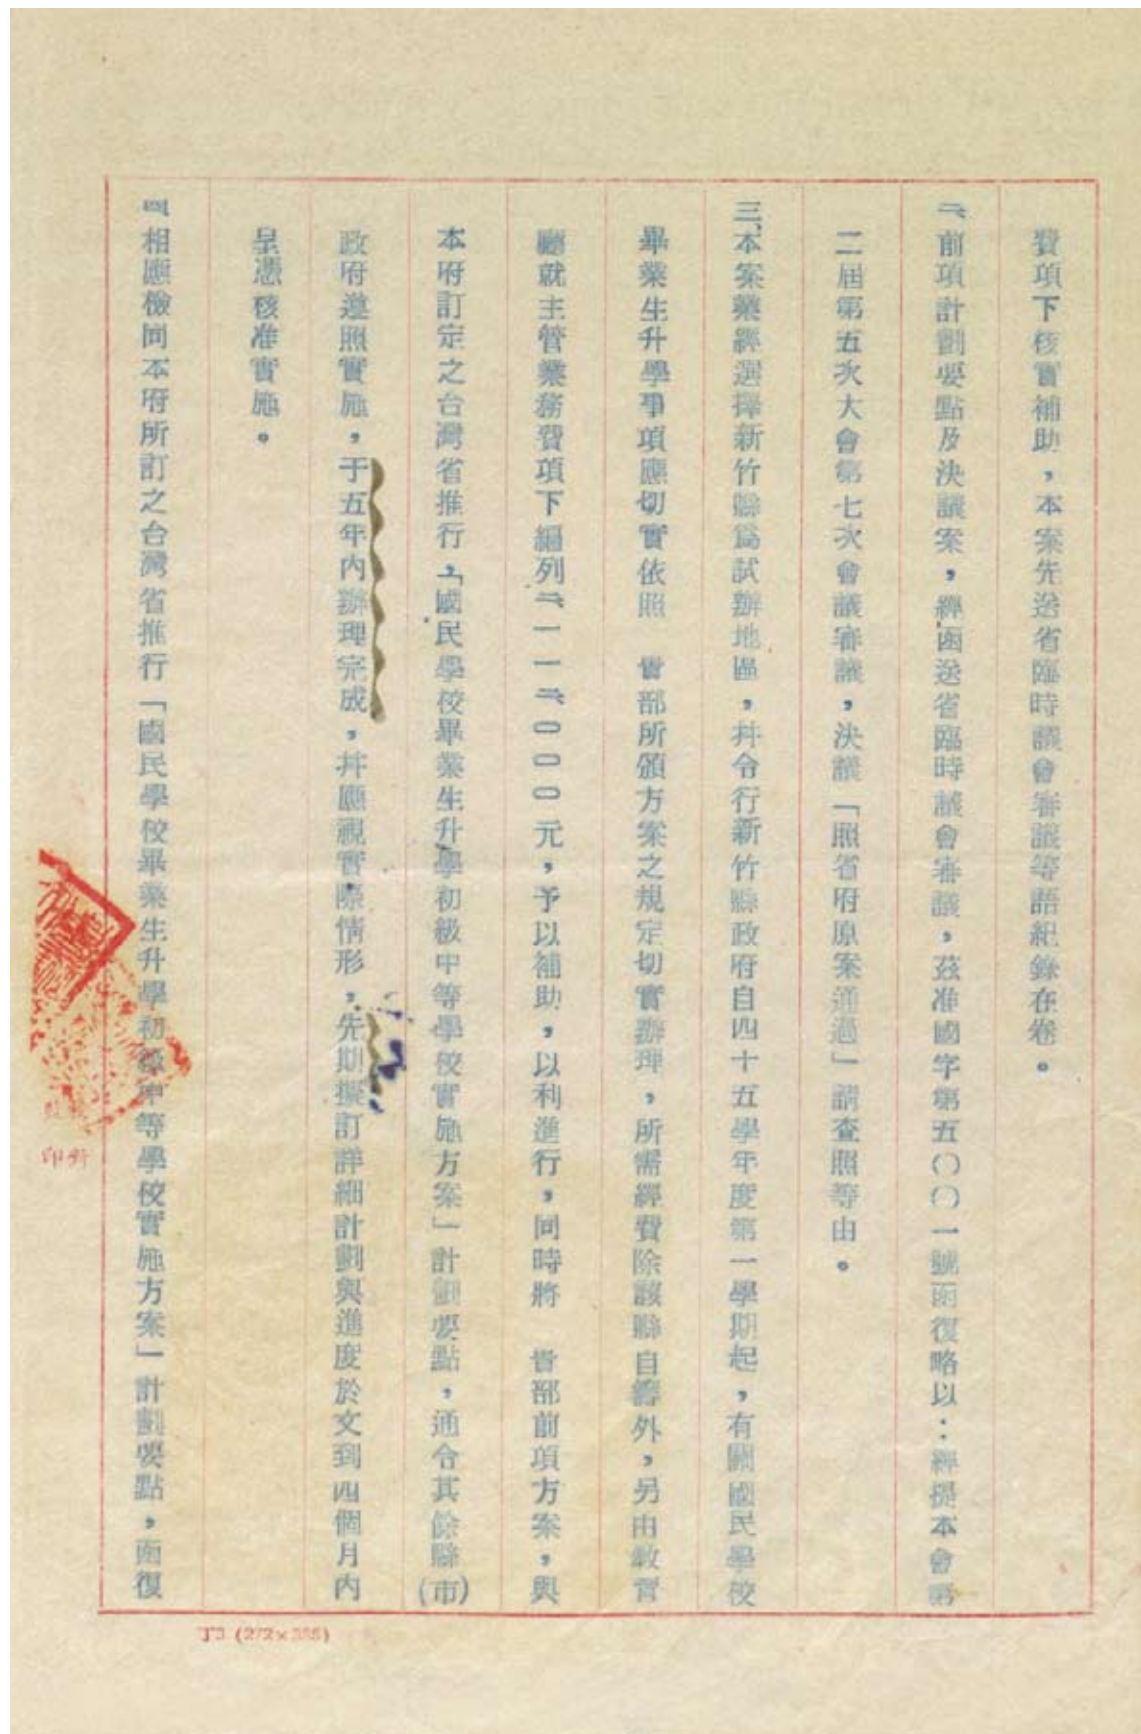 費項下核實補助，本案先送省臨時議會審議等語紀錄在卷。
二、前項計劃要點及決議案，經函送省臨時議會審議，茲准國字第五〇〇一號函復略以：經提本會第
二屆第五次大會第七次會議審議，決議「照省府原案通過」請查照等由。
三、本案業經選擇新竹縣爲試辦地區，并令行新竹縣政府自四十五學年度第一學期起，有關國民學校
畢業生升學事項應切實依照　貴部所頒方案之規定切實辦理，所需經費除該縣自籌外，另由教育
廳就主管業務費項下編列二、一一二、〇〇〇元，予以補助，以利進行，同時將　貴部前項方案，與
本府訂定之台灣省推行，「國民學校畢業生升學初級中等學校實施方案」計劃要點，通令其餘縣(市)
政府遵照實施，于五年內辦理完成，并應視實際情形，先期擬訂詳細計劃與進度於文到四個月內
呈憑核准實施。
四、相應檢同本府所訂之台灣省推行「國民學校畢業生升學初級中等學校實施方案」計劃要點，函復
丁3 (272×385)